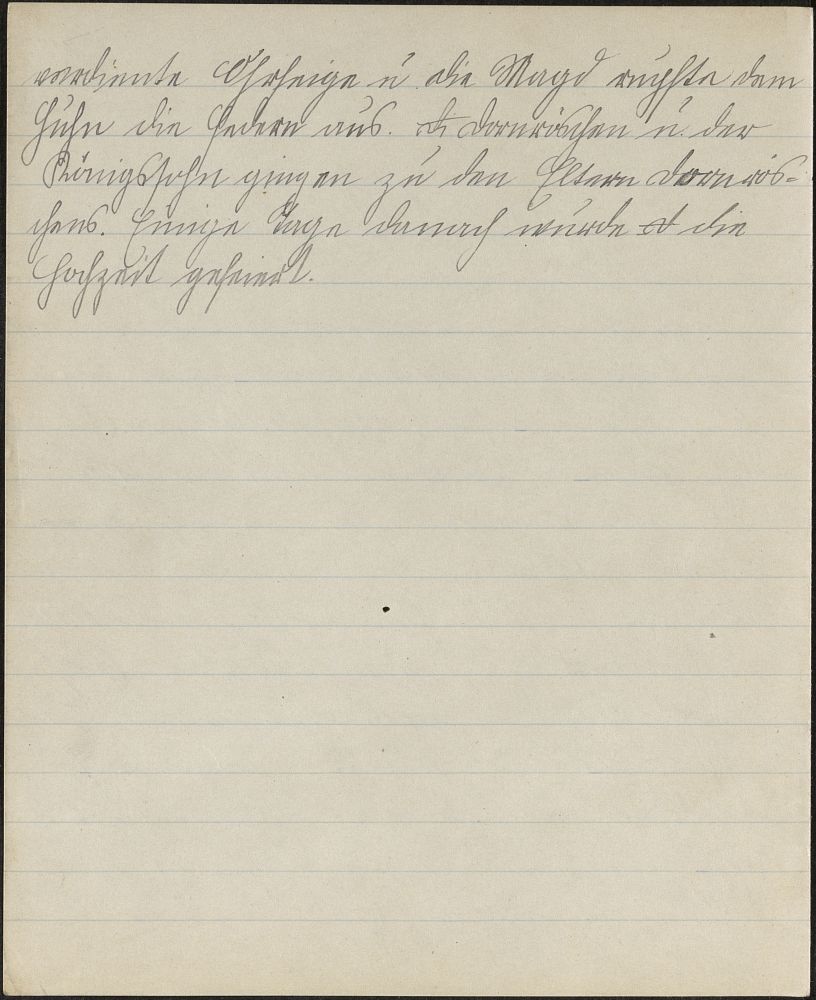 verdiente Ohrfeige u. die Magd rupfte dem
Huhn die Federn aus. Dornröschen u. der
Königssohn gingen zu den Eltern Dornrös-
chens. Einige Tage danach wurde die
Hochzeit gefeiert.